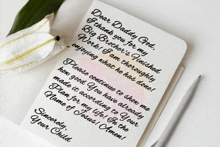 Dear Daddy God,
I thank you for my
Big Brother's Finished
Work! I am thoroughly
enjoying what he has done!
Please continue to show me
how good You have already
made it according to Your
Plan for my life! In the
Name of Jesus! Amen!
Sincerely,
Your Child